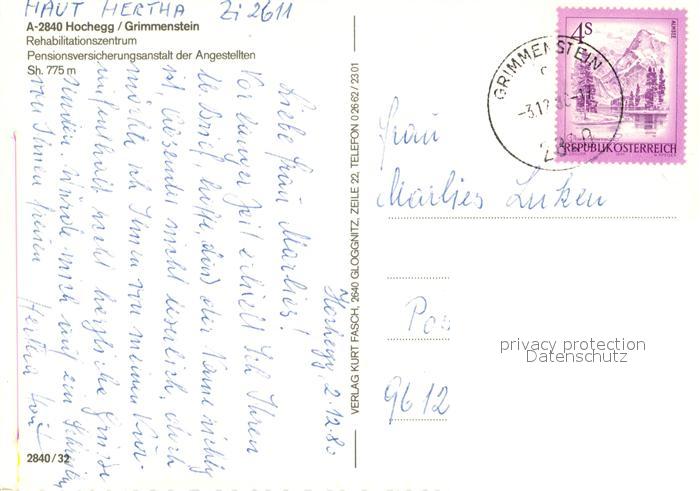 HAUT HERTHA Zi 2611
A-2840 Hochegg / Grimmenstein
Rehabilitationszentrum
Pensionsversicherungsanstalt der Angestellten
Sh. 775 m
Hochegg, 2.12.80
Liebe Frau Marlies!
Vor langer Zeit erhielt ich Ihren
lb. Brief, hoffe, dass der Name richtig
ist, Absender nicht leserlich, doch
möchte ich Ihnen von meinem Kur-
aufenthalt recht herzliche Grüsse
senden. Würde mich auf ein Schreiben
von Ihnen freuen
Hertha Haut
2840/32
VERLAG KURT FASCH, 2640 GLOGGNITZ, ZEILE 22, TELEFON 0 26 62 / 23 01
4S
ALMSEE
REPUBLIK ÖSTERREICH
GRIMMENSTEIN
-3.12.80
Frau
Marlies Luken
Pos
9612
privacy protection
Datenschutz